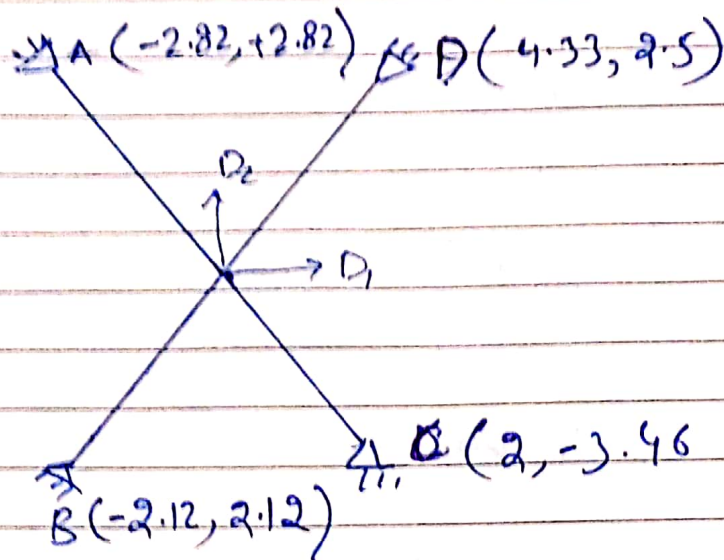 A (-2.82, +2.82)
D (4.33, 2.5)
D₂
D₁
C (2, -3.46
B (-2.12, 2.12)